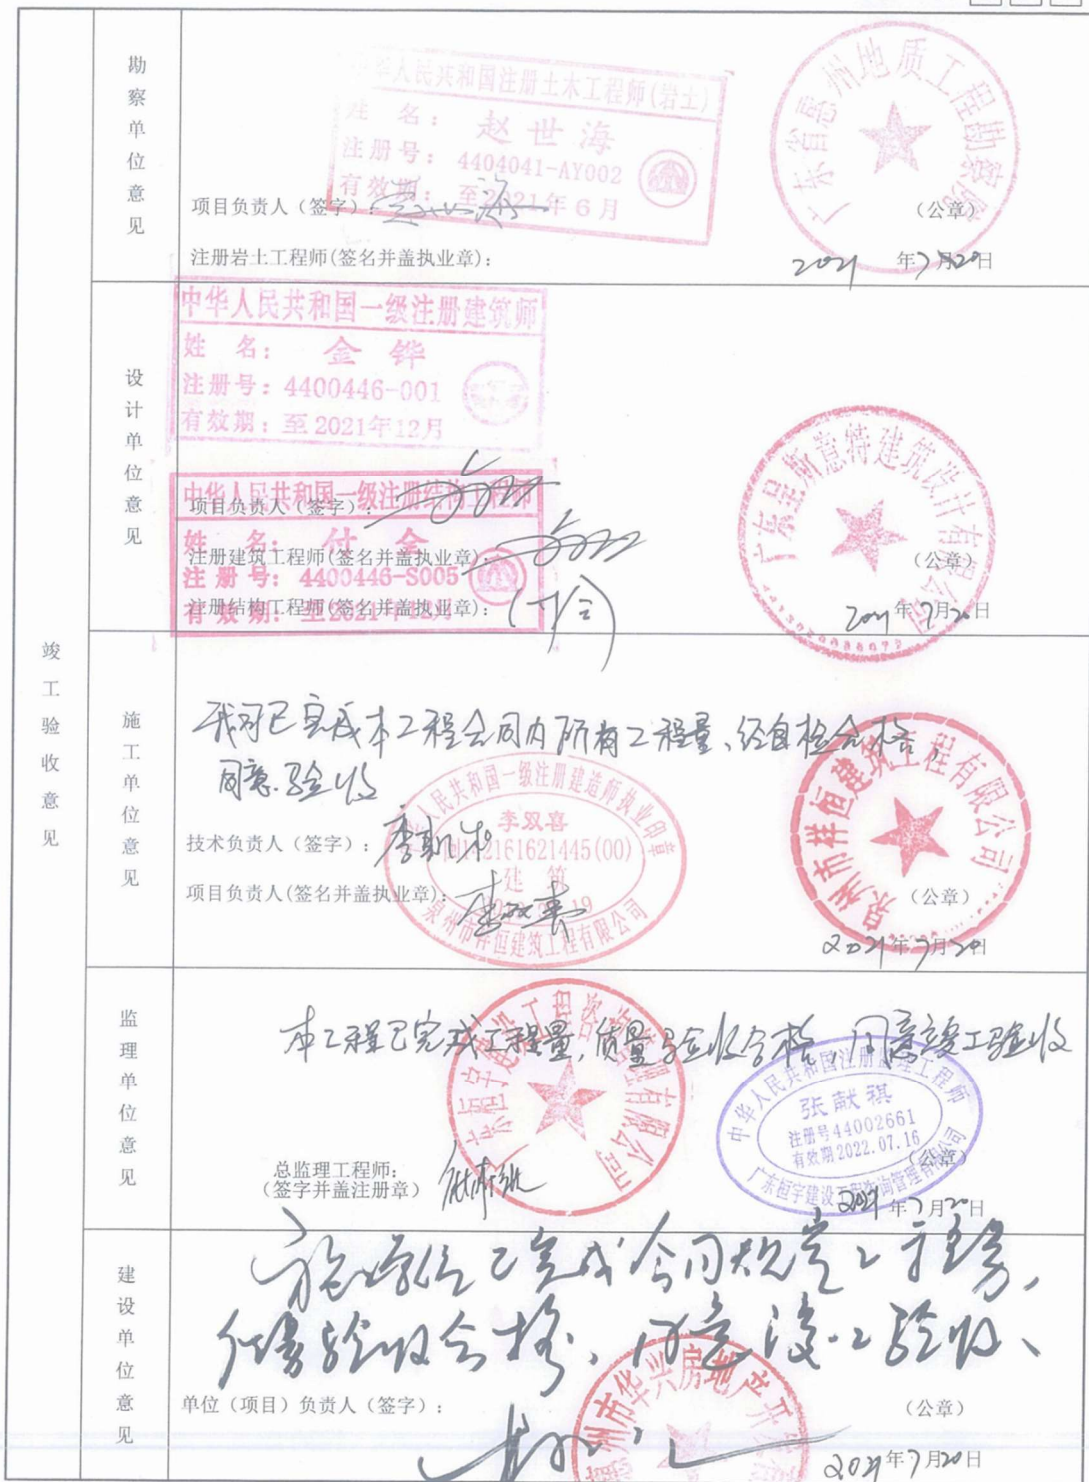 竣工验收意见
勘察单位意见
中华人民共和国注册土木工程师(岩土)
姓 名: 赵世海
注册号: 4404041-AY002
有效期: 至2021年6月
项目负责人（签字）:
注册岩土工程师(签名并盖执业章):
广东省惠州地质工程勘察院
（公章）
2021年7月20日
设计单位意见
中华人民共和国一级注册建筑师
姓 名: 金铧
注册号: 4400446-001
有效期: 至2021年12月
中华人民共和国一级注册结构工程师
姓 名: 付合
注册号: 4400446-S005
有效期: 至2021年12月
项目负责人（签字）:
注册建筑工程师(签名并盖执业章):
注册结构工程师(签名并盖执业章):
广东星斯意特建筑设计有限公司
（公章）
2021年7月20日
施工单位意见
我司已完成本工程合同内所有工程量、经自检合格,
同意验收
技术负责人（签字）:
项目负责人(签名并盖执业章):
中华人民共和国一级注册建造师执业印章
李双喜
建筑
泉州市祥恒建筑工程有限公司
李双喜
泉州市祥恒建筑工程有限公司
（公章）
2021年7月20日
监理单位意见
本工程已完成工程量,质量验收合格,同意竣工验收
广东恒宇建设工程咨询管理有限公司
总监理工程师:
（签字并盖注册章）
中华人民共和国注册监理工程师
张献祺
注册号44002661
有效期2022.07.16
广东恒宇建设工程咨询管理有限公司
（公章）
2021年7月20日
建设单位意见
施工单位已完成合同规定工
验收合格,同意竣工验收、
单位（项目）负责人（签字）:
惠州市华兴房地产开
（公章）
2021年7月20日